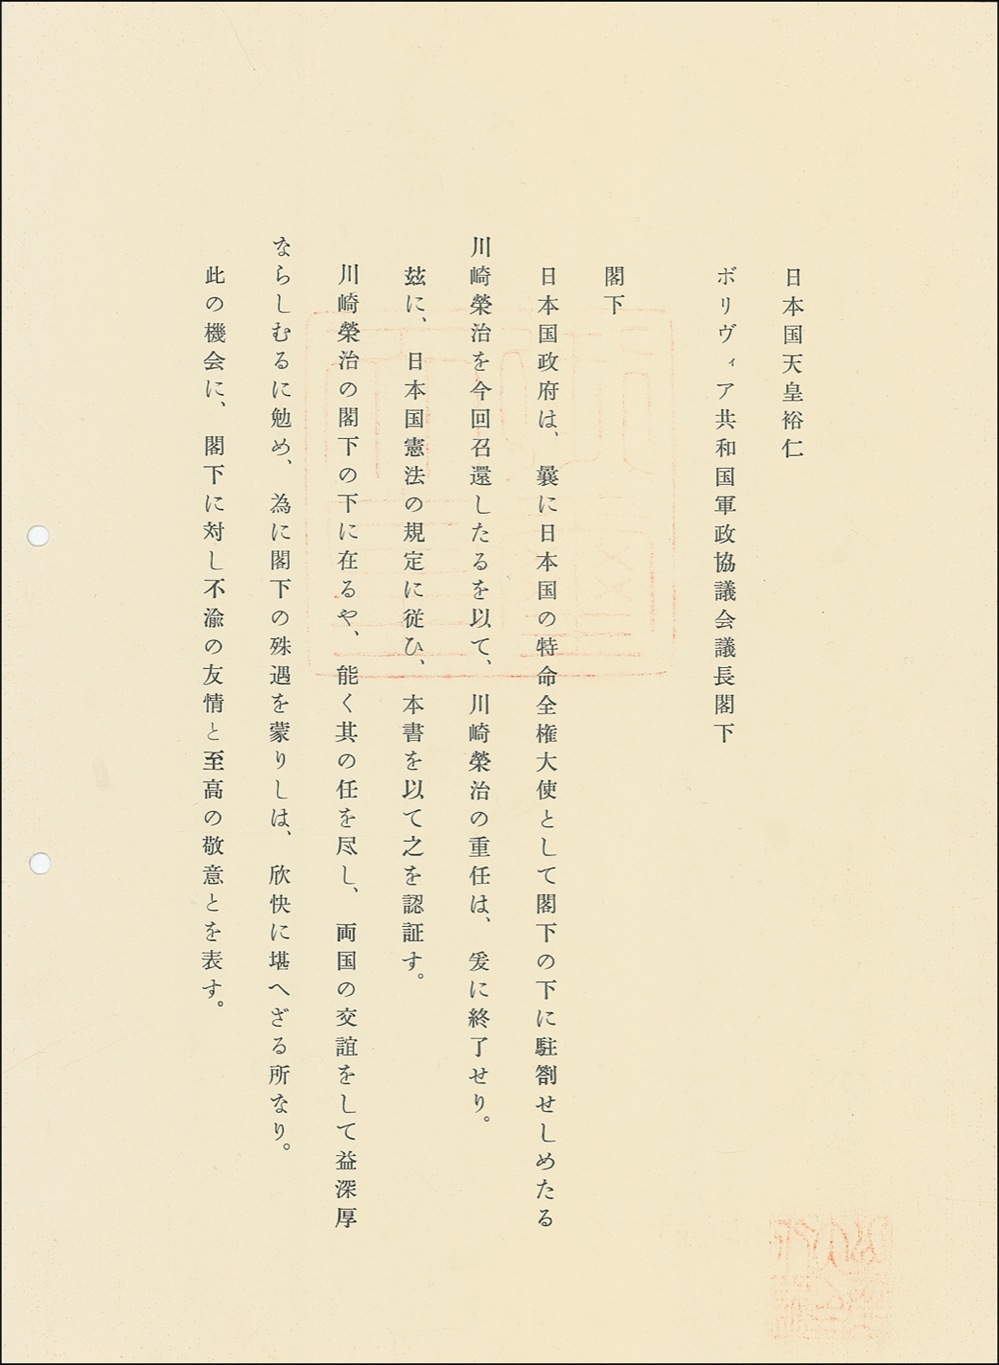 日本国天皇裕仁
ボリヴィア共和国軍政協議会議長閣下
閣下
日本国政府は、曩に日本国の特命全権大使として閣下の下に駐劄せしめたる
川崎榮治を今回召還したるを以て、川崎榮治の重任は、爰に終了せり。
玆に、日本国憲法の規定に従ひ、本書を以て之を認証す。
川崎榮治の閣下の下に在るや、能く其の任を尽し、両国の交誼をして益深厚
ならしむるに勉め、為に閣下の殊遇を蒙りしは、欣快に堪へざる所なり。
此の機会に、閣下に対し不渝の友情と至高の敬意とを表す。